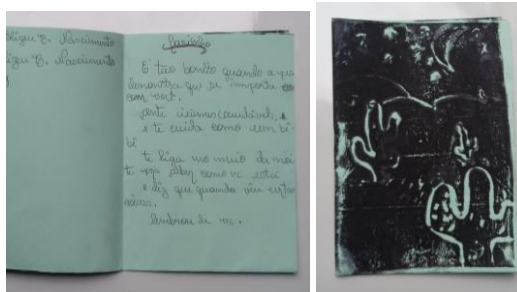 B. Nascimento
B. Nascimento
É tão bonito quando a
demonstra que se importa
com você.
sente ciúmes (saudável),
e te cuida como um bi-
bi
te liga no meio da noi-
te pra saber como vc está
e diz que quando viu
lembrou de vc.